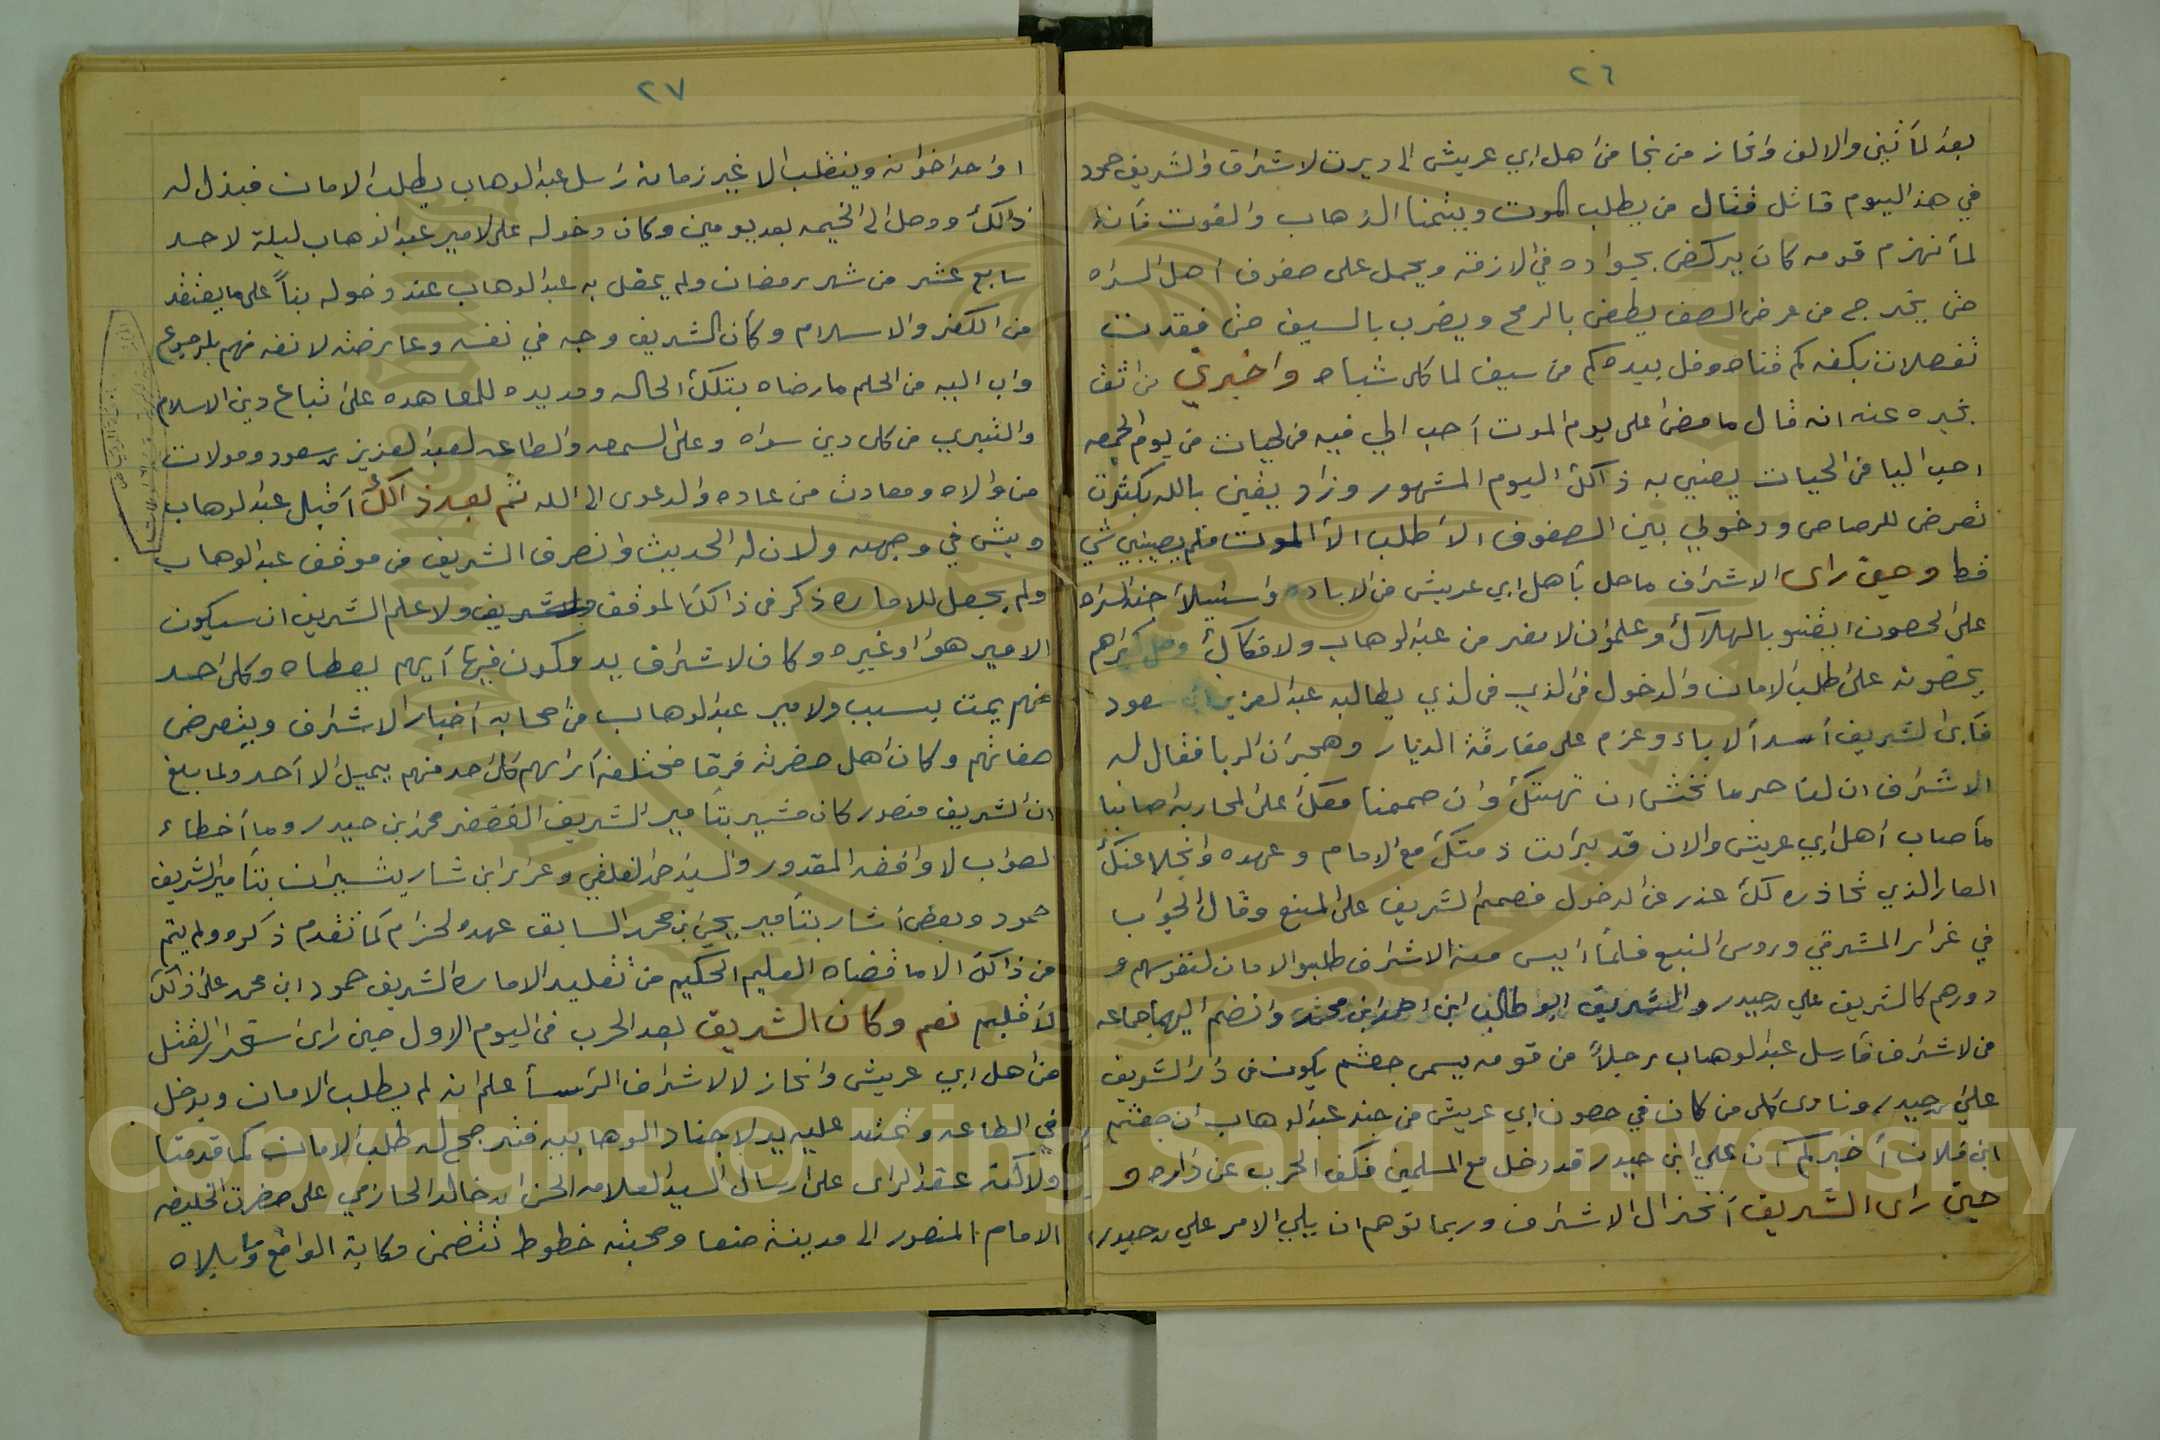 ٢٦
بعد لمأتين والالف وانحاز من نجا من اهل ابي عريش الى ديرت لاشراف والشريف حمود
في هذ اليوم قاتل قتال من يطلب الموت ويتمنا الذهاب والفوت فأنه
لمأنهزم قومه كان يركض بجواده في الازقه ويحمل على صفوف اهل السراه
حتى يخرج من عرض الصف يطعن بالرمح ويضرب بالسيف حتى فقدت
تفصلات بكفه كم قناه وفل بيده كم من سيف لما كل شباه واخبرني من اثق
بخبره عنه انه قال ما مضى على يوم الموت أحب الي فيه من لحيات من يوم الجمعه
احب اليا من الحيات يعني به ذالك اليوم المشهور وزاد يقين بالله بكثرت
تعرض للرصاص ودخولي بين الصفوف الأطلب الأ الموت فلم يصيبني شي
قط وحين راى الاشراف ماحل بأهل ابي عريش من الاباده واستيلأ جند السراه
على الحصون ايقنو بالهلاك وعلمو ان لا مفر من عبد الوهاب ولا فكاك
يحضونه على طلب الامان والدخول في الذي يطالبه عبد العزيز ابن سعود
فأبى الشريف أسد ألاباء وعزم على مفارقة الديار وهجران الربا فقال له
الاشراف ان لنا حرما نخش ان تهتك وان صممنا معك على المحاربه اصابنا
مأصاب أهل ابي عريش والان قد برأت ذمتك مع الامام وعهده وانجلا عنك
العار الذي تحاذره لك عذر عن الدخول فصمم الشريف على المنع وقال الجواب
في غرار المشرفي وروس النبع فلمأ ايس منه الاشراف طلبو الامان لنفوسهم و
دورهم كالشريف علي بن حيدر والشريف ابو طالب ابن احمد ابن محمد وانضم اليهم جماعه
من لاشراف فأرسل عبد الوهاب رجلاً من قومه يسمى جعثم يكون في دار الشريف
علي بن حيدر ونادى كل من كان في حصون ابي عريش من جند عبد الوهاب ان جعثم
ابن فلان أخبركم أن علي ابن حيدر قد دخل مع المسلمين فكف الحرب عن داره و
حين راى الشريف أنخزال الاشراف وربما توهم ان يلي الامر علي بن حيدر
٢٧
او احد اخوانه وينقلب الا غير زمانه رسل عبد الوهاب يطلب الامان فبذل له
ذالك ووصل الى الخيمه بعد يومين وكان دخوله على الامير عبد الوهاب ليلة لاحد
سابع عشر من شهر رمضان ولم يحفل به عبد الوهاب عند دخوله بناً على ما يعتقد
من الكفر والاسلام وكأن الشريف وجه في نفسه وعارضته لانفه فهم بلرجوع
واب اليه من الحلم مارضاه بتلك الحاله ومد يده للمعاهده على تباع دين الاسلام
والتبري من كل دين سواه وعلى السمعه والطاعه لعبد العزيز بن سعود ومولات
من والاه ومعادت من عاده والدعوى الى الله ثم بعد ذالك أقبل عبد الوهاب
وبش في وجهه ولان له الحديث وانصرف الشريف من موقف عبد الوهاب
ولم يجعل للاماره ذكر في ذالك الموقف ولا علم الشريف ان سيكون
الامير هو او غيره وكان لاشراف يدوكون فيها أيهم يعطاه وكل احد
منهم يمت بسبب ولامير عبد الوهاب من صحابه أخبار الاشراف ويتعرض
صفاتهم وكان اهل حضرته فرقا مختلفه أرائهم كل احد منهم يميل الا أحد ولما بلغ
ان الشريف منصور كان مشير بتأمير الشريف الغضفر محمد ابن حيدر وما أخطاء
الصواب لاوافقه المقدور والسيد احمد الفلقي وعرار ابن شار يشيران بتأمير الشريف
حمود وبعض أشار بتأمير يحيى ابن محمد السابق عهده لحزام كما تقدم ذكره ولم يتم
من ذالك الا ما قضاه العليم الحكيم من تقليد الاماره الشريف حمود ابن محمد على ذلك
لأقليم نعم وكان الشريف بعد الحرب في اليوم الاول حين راى استحرار القتل
من اهل ابي عريش وانحاز لا لاشراف الرئسأ علم انه لم يطلب الامان ويدخل
في الطاعه وتمتد عليه يد لاجناد الوهابيه فترجح له طلب الامان كما قدمنا
ولاكنه عقد الراى على ارسال السيد العلامه الحسن ابن خالد الحازمي على حضرت الخليفه
الامام المنصور الى مدينة صنعا وصحبته خطوط تتضمن حكاية الواقع وما بلاه